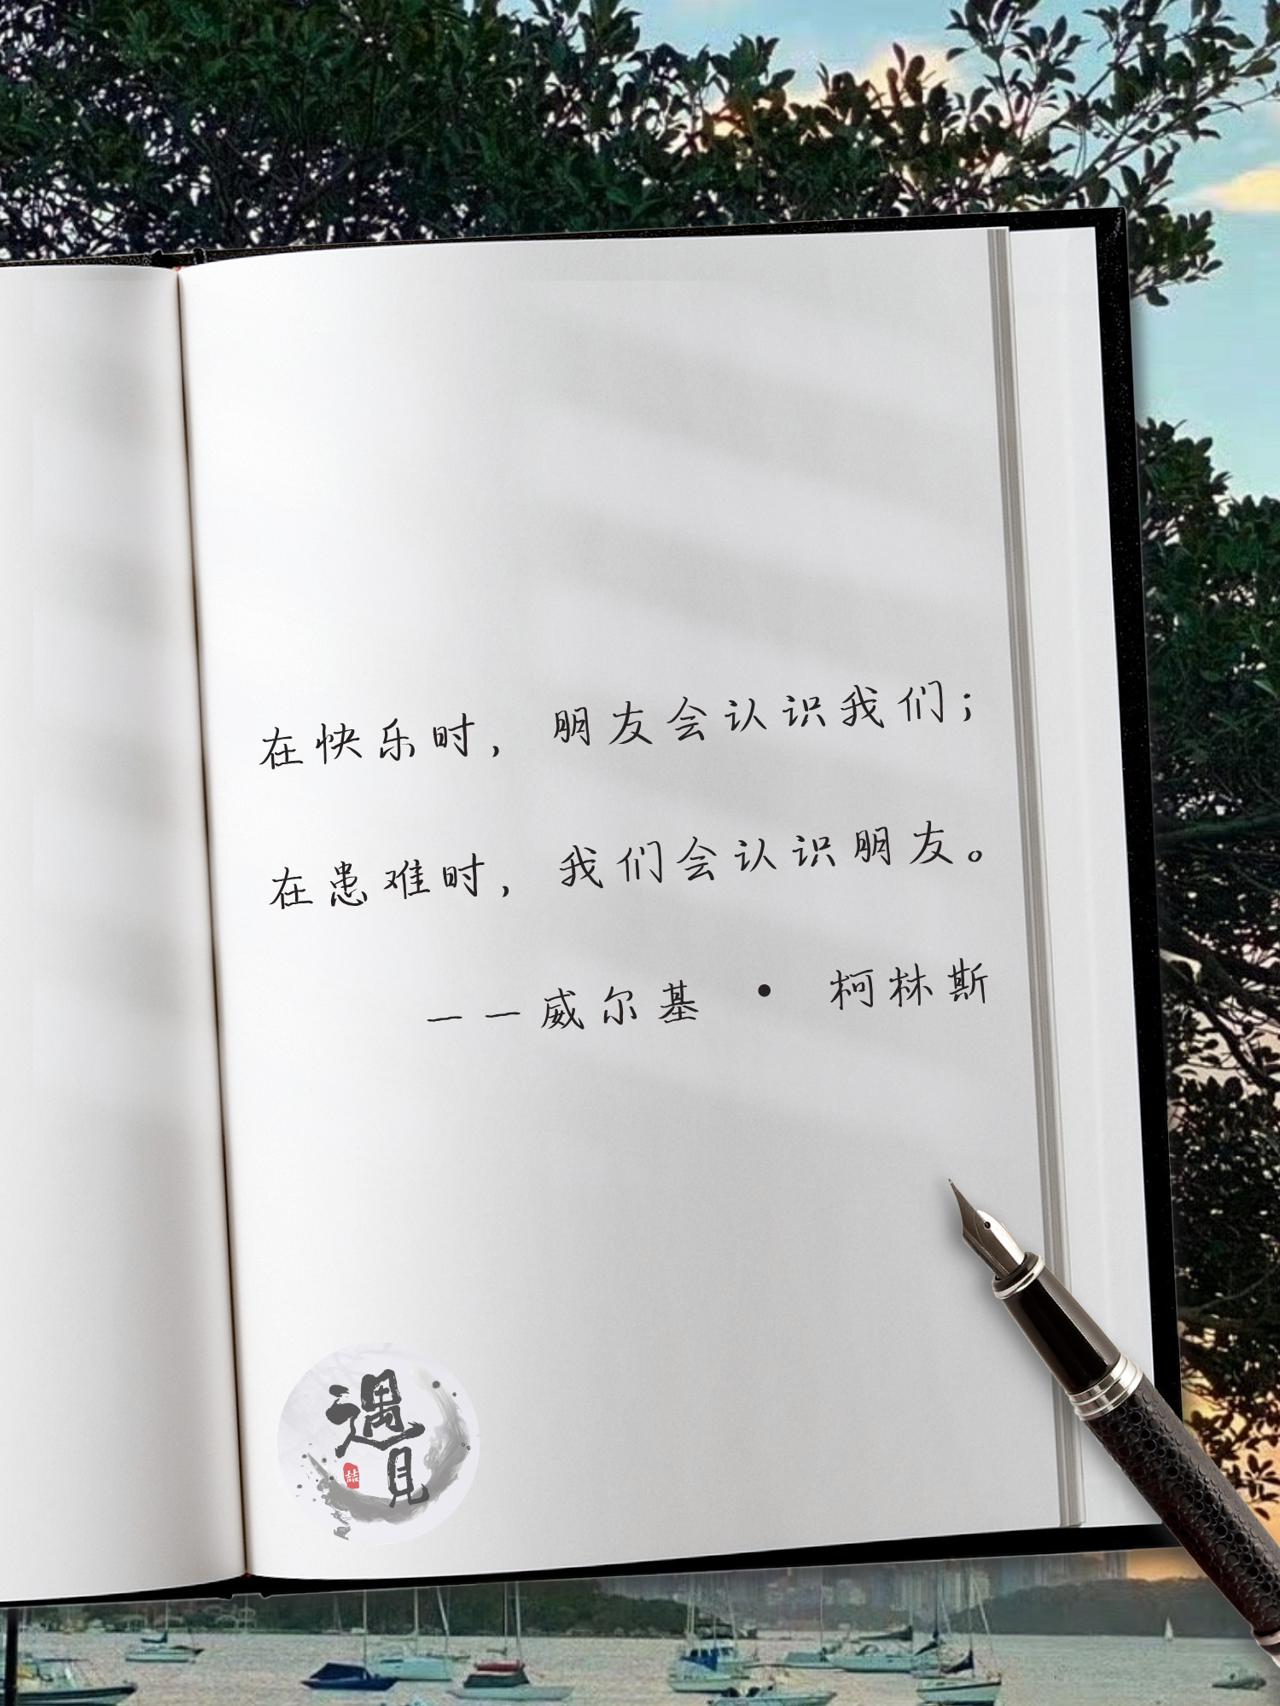 在快乐时，朋友会认识我们；
在患难时，我们会认识朋友。
——威尔基 • 柯林斯
遇見
喆